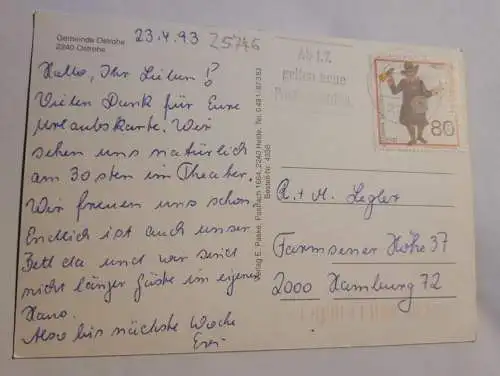 Gemeinde Ostrohe
2240 Ostrohe
23.4.93 25746
Hallo, Ihr Lieben!
Vielen Dank für Eure
Urlaubskarte. Wir
sehen uns natürlich
am 30sten im Theater.
Wir freuen uns schon.
Endlich ist auch unser
Bett da und wir sind
nicht länger Gäste im eigenen
Haus.
Also bis nächste Woche
Verlag E. Paake, Postfach 1664, 2240 Heide,
Bestell-Nr. 4350
Ab 1.7.
gelten neue
80
R. + M. Legler
Farmsener Höhe 37
2000 Hamburg 72